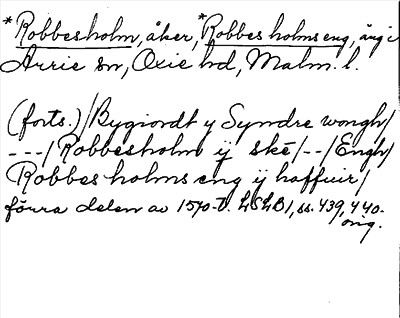 *Robbesholm, åker, *Robbes holms eng, äng i
Arrie sn, Oxie hd, Malm. l.
(forts.)/Bygiordt y Syndre wongh/
---/Robbesholm ÿ skě/--/Engh/
Robbes holms eng ÿ haffuir/
förra delen av 1570-t. LSLB1, ss. 439, 440.
orig.